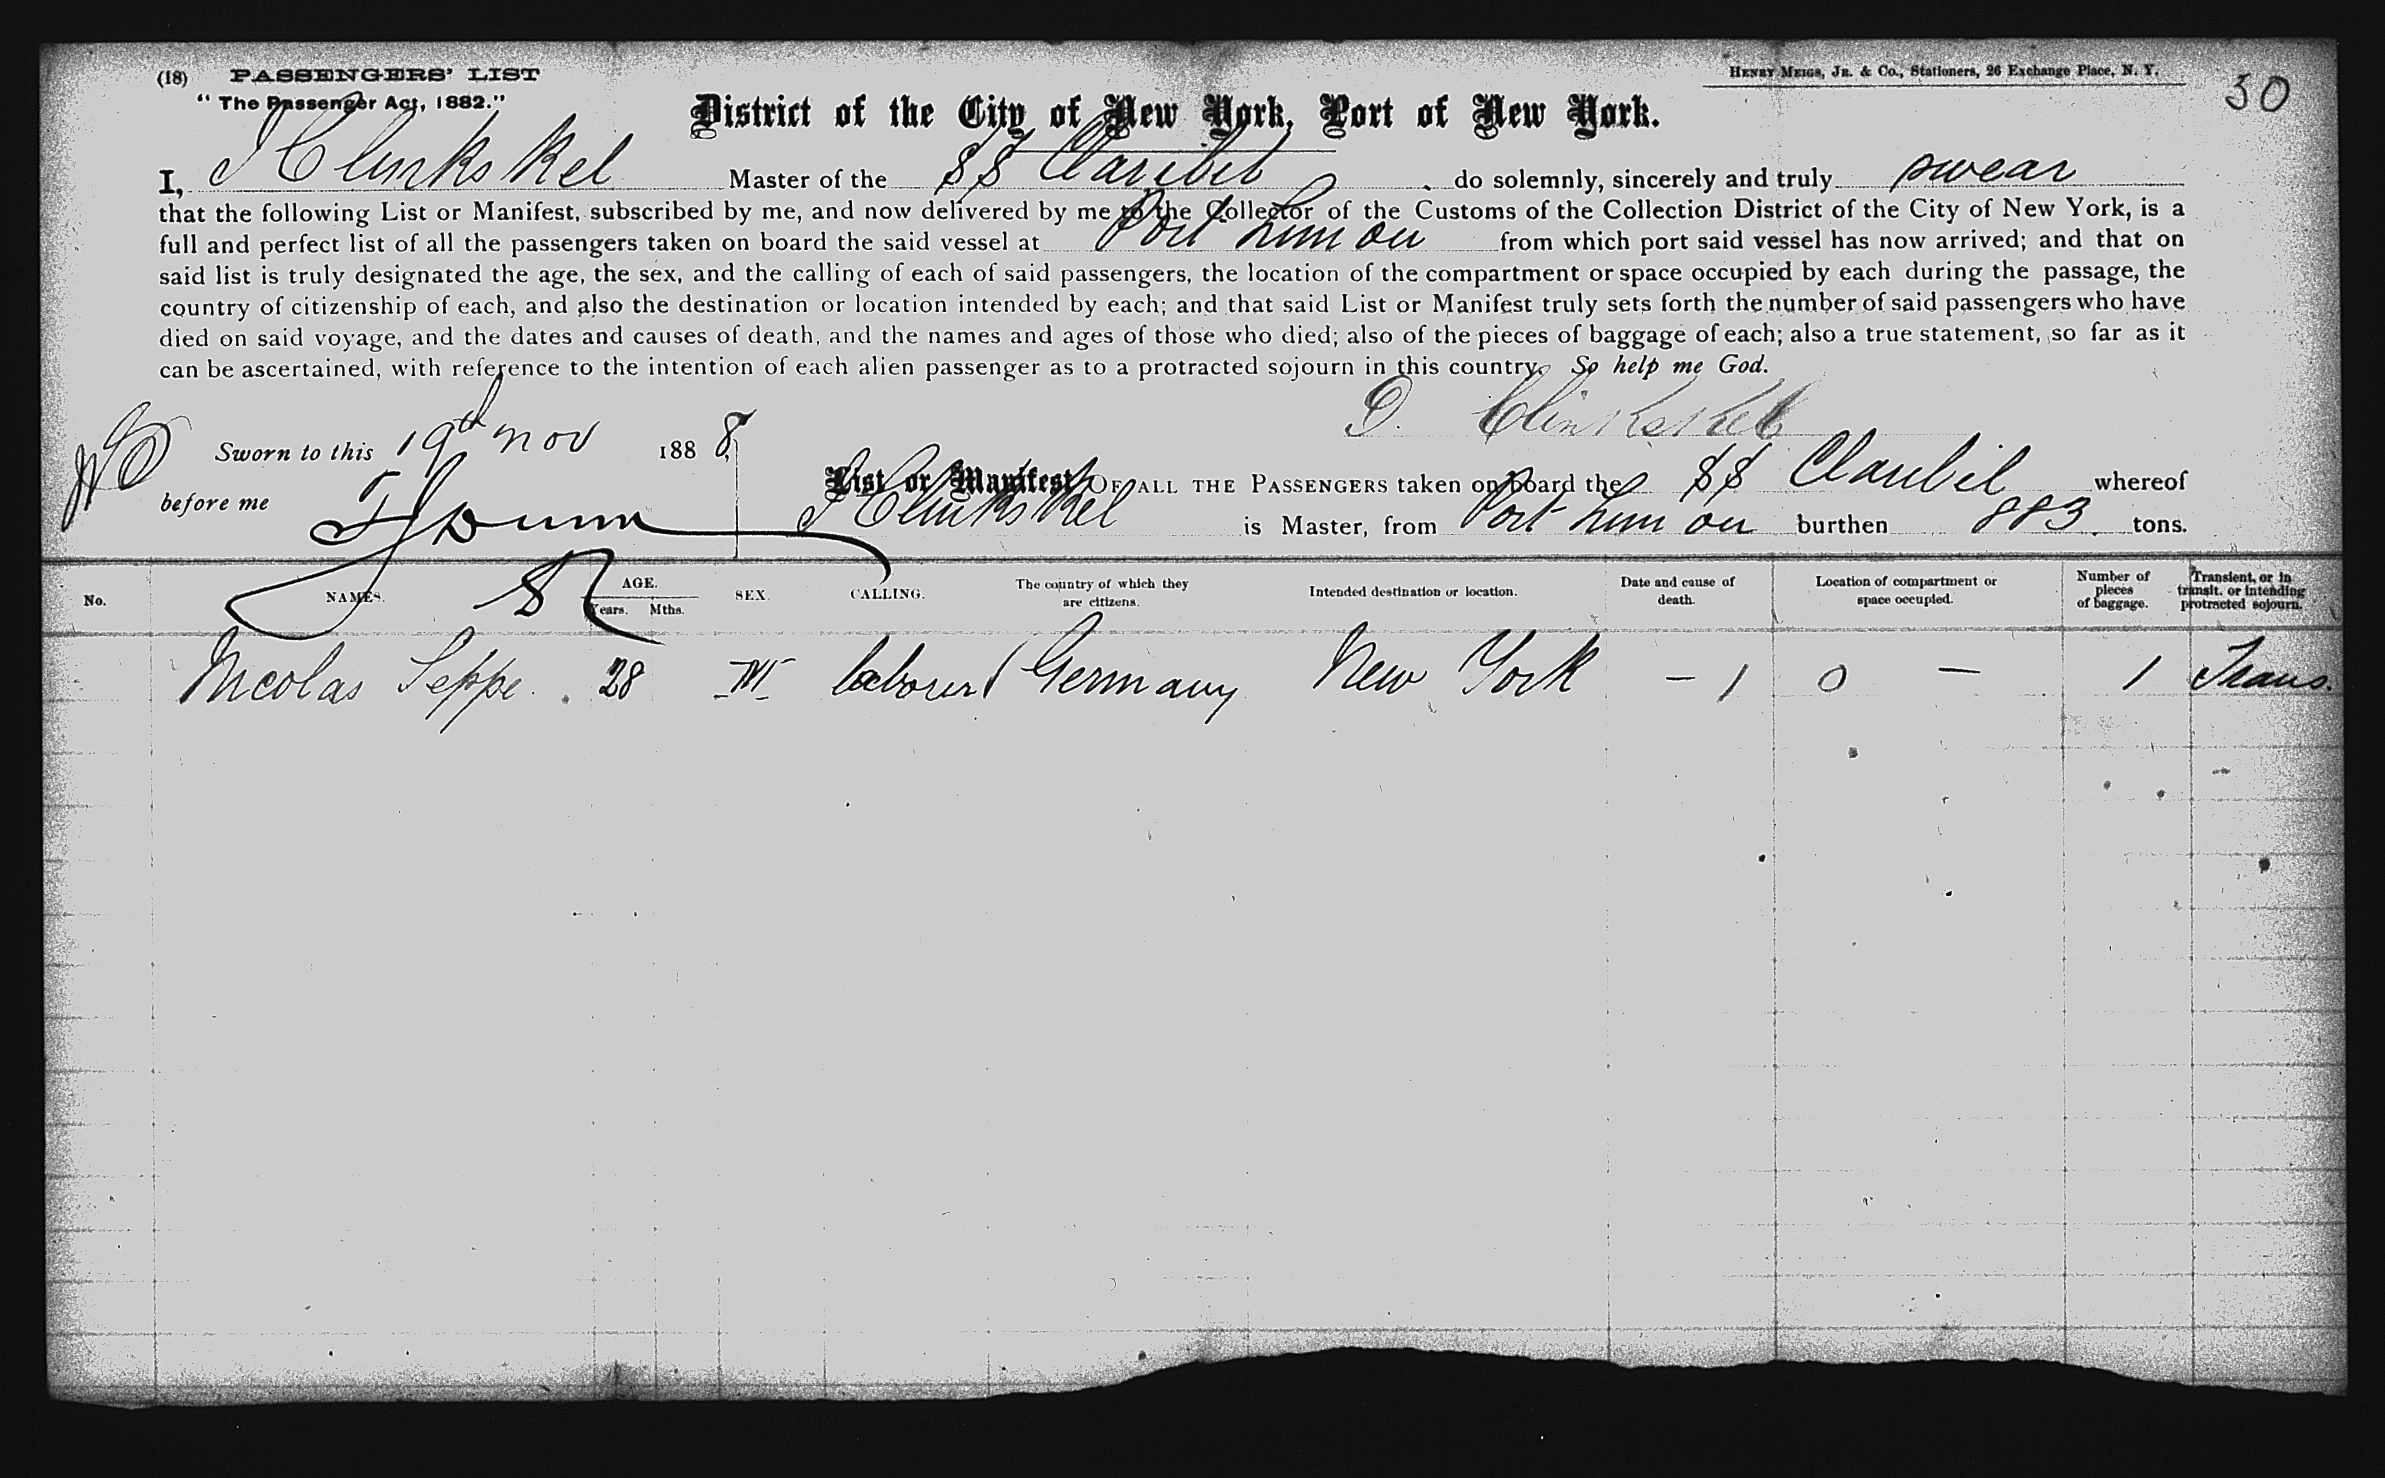 (18) PASSENGERS' LIST
HENRY MEIGS, JR. & CO., Stationers, 26 Exchange Place, N. Y.
30
"The Passenger Act, 1882."
District of the City of New York, Port of New York.
I, J Clinkskel Master of the SS Claribel do solemnly, sincerely and truly swear
that the following List or Manifest, subscribed by me, and now delivered by me to the Collector of the Customs of the Collection District of the City of New York, is a
full and perfect list of all the passengers taken on board the said vessel at Port Limon from which port said vessel has now arrived; and that on
said list is truly designated the age, the sex, and the calling of each of said passengers, the location of the compartment or space occupied by each during the passage, the
country of citizenship of each, and also the destination or location intended by each; and that said List or Manifest truly sets forth the number of said passengers who have
died on said voyage, and the dates and causes of death, and the names and ages of those who died; also of the pieces of baggage of each; also a true statement, so far as it
can be ascertained, with reference to the intention of each alien passenger as to a protracted sojourn in this country. So help me God.
Clinkskel
Sworn to this 19th Nov 1888,
List or Manifest OF ALL THE PASSENGERS taken on board the SS Claribel whereof
before me Dunn
J Clinkskel is Master, from Port Limon burthen 883 tons.
No. NAMES. AGE. Years. Mths. SEX. CALLING. The country of which they are citizens. Intended destination or location. Date and cause of death. Location of compartment or space occupied. Number of pieces of baggage. Transient, or in transit, or intending protracted sojourn.
Nicolas Seppe. 28 M laborer Germany New York – 1 0 – 1 Trans.